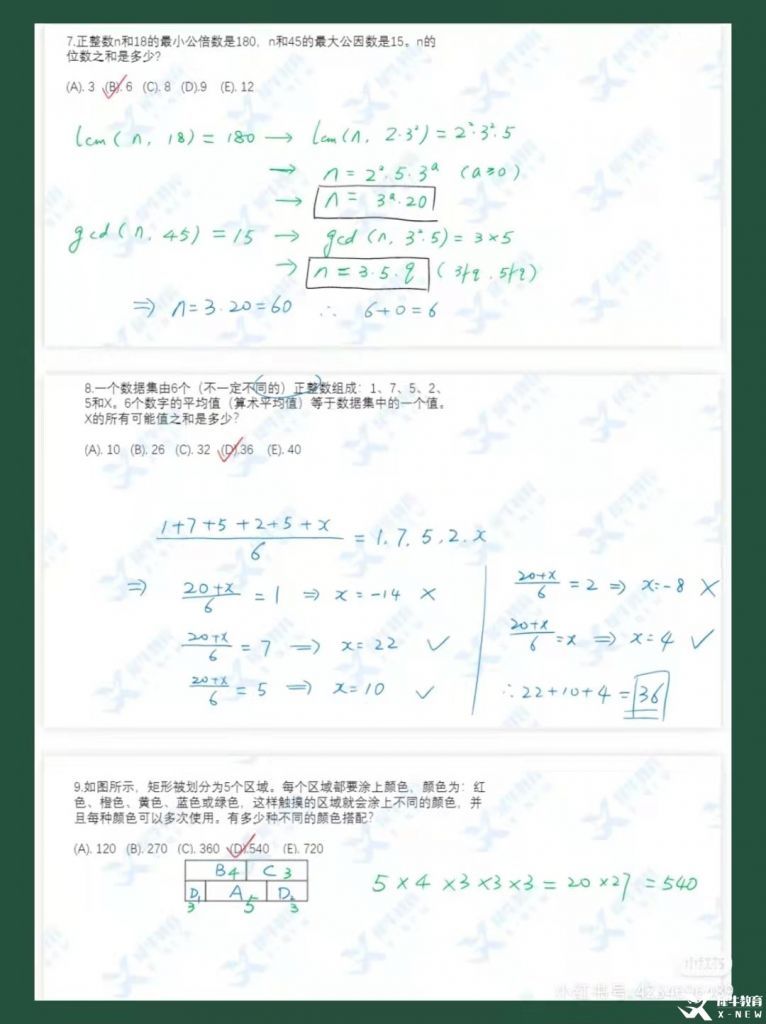 7.正整数n和18的最小公倍数是180，n和45的最大公因数是15。n的
位数之和是多少？
(A). 3 (B). 6 (C). 8 (D).9 (E). 12
lcm(n, 18) = 180 → lcm(n, 2·3²) = 2²·3²·5
→ n = 2²·5·3ᵃ (a≥0)
→ n = 3ᵃ·20
gcd(n, 45) = 15 → gcd(n, 3²·5) = 3×5
→ n = 3·5·q (3∤q, 5∤q)
⇒ n = 3·20 = 60 ∴ 6+0=6
8.一个数据集由6个（不一定不同的）正整数组成：1、7、5、2、
5和X。6个数字的平均值（算术平均值）等于数据集中的一个值。
X的所有可能值之和是多少？
(A). 10 (B). 26 (C). 32 (D).36 (E). 40
(1+7+5+2+5+x)/6 = 1, 7, 5, 2, x
⇒ (20+x)/6 = 1 ⇒ x = -14 ×
(20+x)/6 = 7 ⇒ x = 22 ✓
(20+x)/6 = 5 ⇒ x = 10 ✓
(20+x)/6 = 2 ⇒ x = -8 ×
(20+x)/6 = x ⇒ x = 4 ✓
∴ 22+10+4 = 36
9.如图所示，矩形被划分为5个区域。每个区域都要涂上颜色，颜色为：红
色、橙色、黄色、蓝色或绿色，这样触摸的区域就会涂上不同的颜色，并
且每种颜色可以多次使用。有多少种不同的颜色搭配？
(A). 120 (B). 270 (C). 360 (D).540 (E). 720
B4 C 3
D₁ A D₂
3 5 3
5 × 4 × 3 × 3 × 3 = 20 × 27 = 540
小红书
犀牛教育
X-NEW